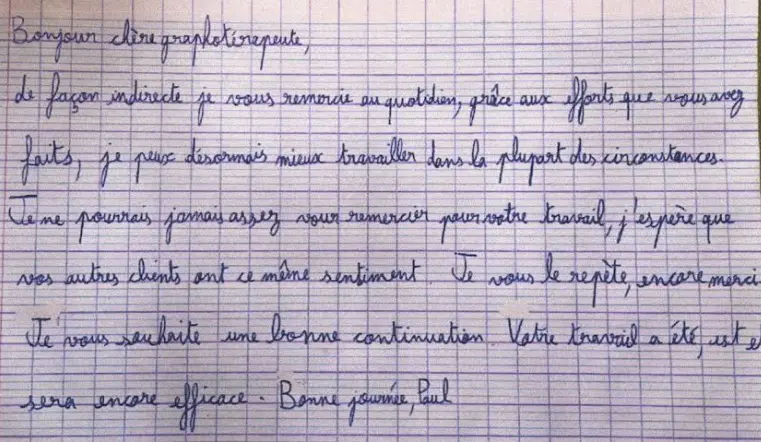 Bonjour chère graphotérapeute,
de façon indirecte je vous remercie au quotidien, grâce aux efforts que vous avez
faits, je peux désormais mieux travailler dans la plupart des circonstances.
Je ne pourrais jamais assez vour remercier pour votre travail, j'espère que
vos autres clients ont ce même sentiment. Je vous le repète, encore merci.
Je vous souhaite une bonne continuation. Votre travail a été, est et
sera encore efficace. Bonne journée, Paul